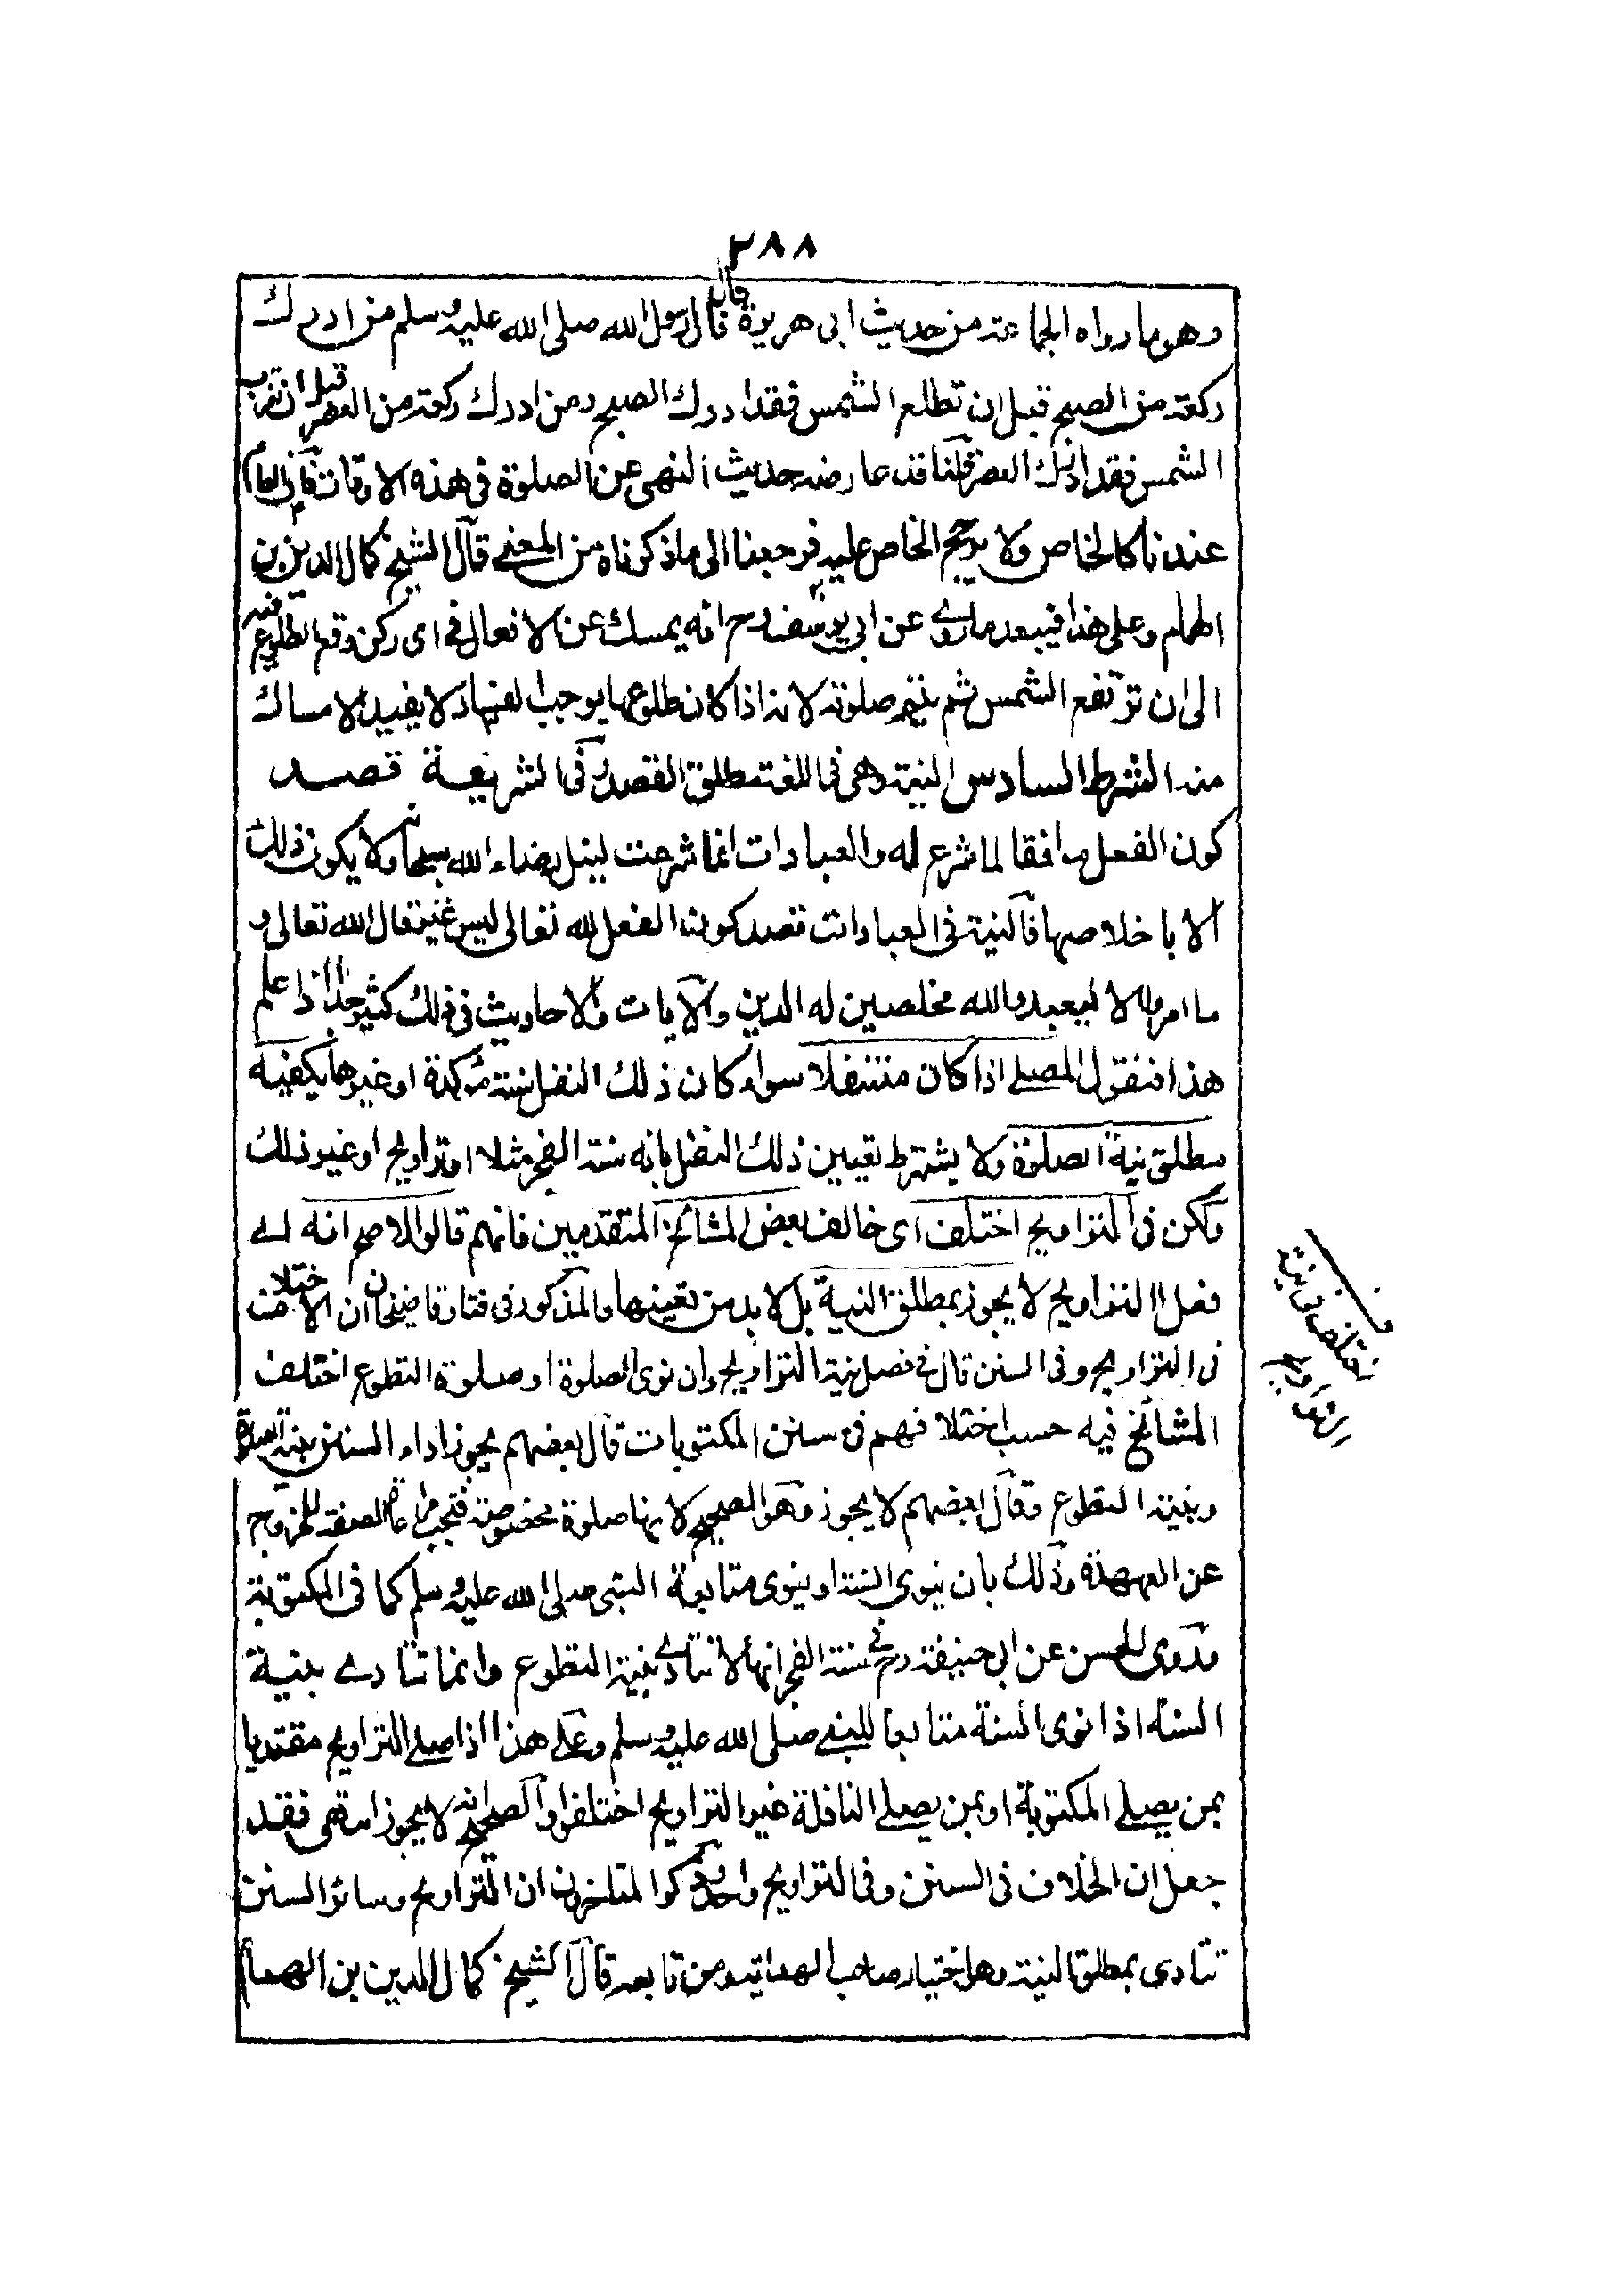 ٢٨٨
وهو ما رواه الجماعة من حديث ابى هريرة قال قال رسول الله صلى الله عليه وسلم من ادرك
ركعة من الصبح قبل ان تطلع الشمس فقد ادرك الصبح ومن ادرك ركعة من العصر قبل ان تغرب
الشمس فقد ادرك العصر قلنا قد عارضه حديث النهى عن الصلوة فى هذه الاوقات فان العام
عندنا كالخاص ولا يرجح الخاص عليه فرجعنا الى ما ذكرناه من المعنے قال الشيخ كمال الدين بن
الهمام وعلى هذا فيبعد ما روے عن ابى يوسف رح انه يمسك عن الافعال فى اى ركن وقع الطلوع فيه
الى ان ترتفع الشمس ثم يتم صلوته لانه اذا كان طلوعها يوجب لا يفيد الامساك
منه الشرط السادس النية وهى فى اللغة مطلق القصد وفى الشريعة قصد
كون الفعل موافقا لما شرع له والعبادات انما شرعت لينل رضاء الله سبحانه ولا يكون ذلك
الا باخلاصها فالنية فى العبادات قصد كون الفعل لله تعالى ليس غير قال الله تعالى و
ما امروا الا ليعبدوا الله مخلصين له الدين والآيات والاحاديث فى ذلك كثير جدا اذا علم
هذا فنقول المصلے اذا كان متنفلا سواء كان ذلك النفل سنة مؤكدة او غيرها يكفيه
مطلق نية الصلوة ولا يشترط تعيين ذلك النفل بانه سنة الفجر مثلا او تراويح او غير ذلك
ولكن فى التراويح اختلف اى خالف بعض المشائخ المتقدمين فانهم قالوا الاصح انه اے
فعل التراويح لا يجوز بمطلق النية بل لا بد من تعيينها والمذكور فى فتاوى قاضيخان ان الاختلاف
فى التراويح وفى السنن قال فى فصل نية التراويح وان نوى الصلوة او صلوة التطوع اختلف
المشائخ فيه حسب اختلافهم فى سنن المكتوبات قال بعضهم يجوز اداء السنن بنية الصلوة
وبنية التطوع وقال بعضهم لا يجوز وهو الصحيح لانها صلوة مخصوصة فتجب مراعاة الصفة للخروج
عن العهدة وذلك بان ينوى السنة او ينوى متابعة النبى صلى الله عليه وسلم كما فى المكتوبة
وروى الحسن عن ابى حنيفة رح فى سنة الفجر انها لا تتادے بنية التطوع وانما تتادے بنية
السنة اذا نوى السنة متابعا للنبے صلى الله عليه وسلم وعلے هذا اذا صلے التراويح مقتديا
بمن يصلے المكتوبة او بمن يصلے النافلة غير التراويح اختلفوا والصحيح انه لا يجوز انتهى فقد
جعل ان الخلاف فى السنن وفى التراويح واحد وذكر المتاخرون ان التراويح وسائر السنن
تتادى بمطلق النية وهو اختيار صاحب الهداية ومن تابعه قال الشيخ كمال الدين بن الهمام
اختلف فى نية
التراويح